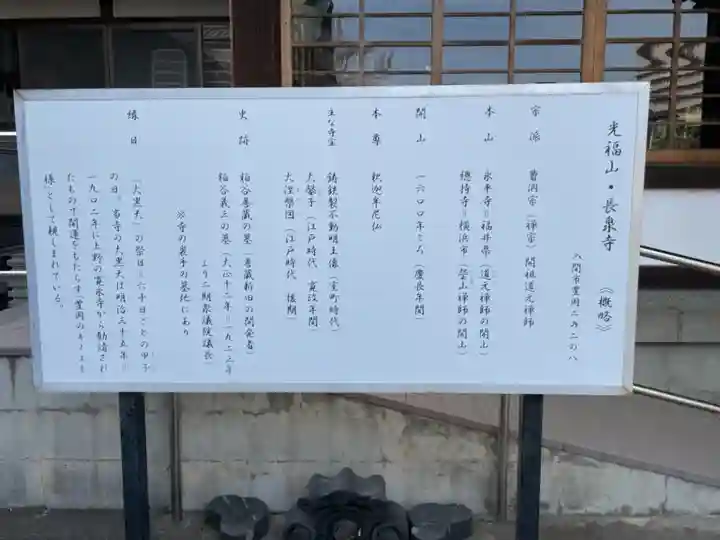 光福山・長泉寺 《概略》
入間市豊岡二ノ二の八
宗派 曹洞宗(禅宗)開祖道元禅師
本山 永平寺=福井県(道元禅師の開山)
總持寺=横浜市(瑩山禅師の開山)
開山 一六〇〇年ころ(慶長年間)
本尊 釈迦牟尼仏
主な寺宝 鋳鉄製不動明王像(室町時代)
大磬子(江戸時代 寛政年間)
大涅槃図(江戸時代 後期)
史跡 粕谷善蔵の墓(善蔵新田の開発者)
粕谷義三の墓(大正十二年=一九二三年
より二期衆議院議長)
※寺の裏手の墓地にあり
縁日 「大黒天」の祭日=六十日ごとの甲子
の日。当寺の大黒天は明治三十五年=
一九〇二年に上野の寛永寺から勧請され
たもので開運をもたらす「豊岡の
様」として親しまれている。